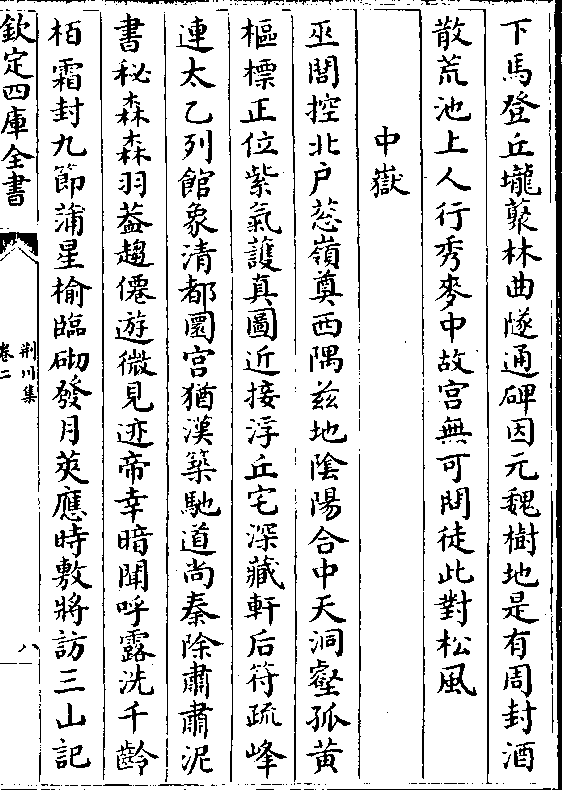 下馬登丘壠藂林曲隧通碑因元魏樹地是有周封酒
散荒池上人行秀麥中故宫無可問徒此對松風
中嶽
巫閭控北户葱嶺奠西隅兹地陰陽合中天洞壑孤黄
樞標正位紫氣護真圖近接浮丘宅深藏軒后符疏峰
連太乙列館象清都圜宫猶漢築馳道尚秦除肅肅泥
書秘森森羽葢趨僊遊微見迹帝幸暗聞呼露洗千齡
栢霜封九節蒲星榆臨砌發月莢應時敷將訪三山記
欽定四庫全書
荆川集
卷二
八